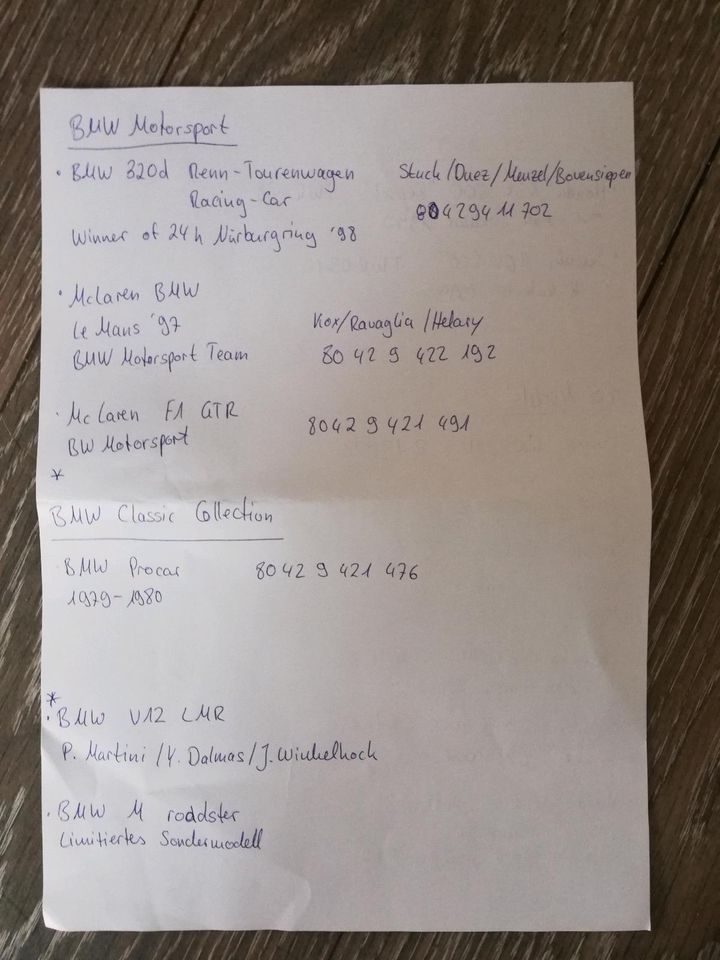 BMW Motorsport
• BMW 320d Renn-Tourenwagen Stuck/Duez/Menzel/Bovensiepen
Racing-Car 804294 11 702
Winner of 24h Nürburgring '98
• McLaren BMW
Le Mans '97 Kox/Ravaglia/Helary
BMW Motorsport Team 80 42 9 422 192
• Mc Laren F1 GTR
BW Motorsport 8042 9 421 491
*
BMW Classic Collection
BMW Procar 80 42 9 421 476
1979-1980
*
• BMW V12 LMR
P. Martini/Y. Dalmas/J. Winkelhock
• BMW M roddster
Limitiertes Sondermodell